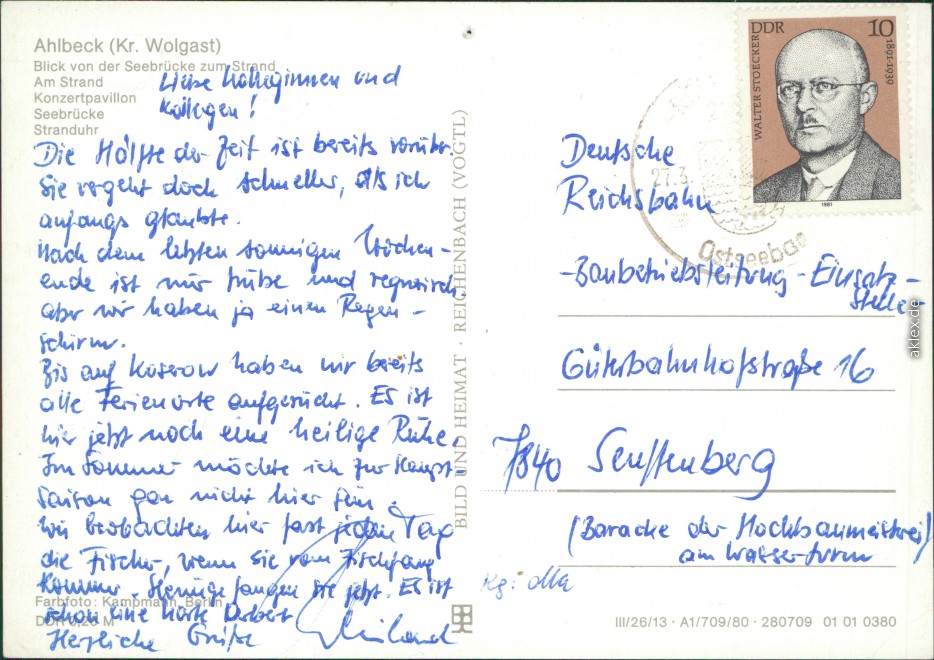 Ahlbeck (Kr. Wolgast)
Blick von der Seebrücke zum Strand
Am Strand
Konzertpavillon
Seebrücke
Stranduhr
Liebe Kolleginnen und
Kollegen!
Die Hälfte der Zeit ist bereits vorüber.
Sie vergeht doch schneller, als ich
anfangs glaubte.
Nach dem letzten sonnigen Wochen-
ende ist nur trübe und regnerisch,
aber wir haben ja einen Regen-
schirm.
Bis auf Koserow haben wir bereits
alle Ferienorte aufgesucht. Es ist
hier jetzt noch eine heilige Ruhe.
Im Sommer möchte ich zur Haupt
saison gar nicht hier sein.
Wir beobachten hier fast jeden Tag
die Fischer, wenn sie vom Fischfang
kommen. Heringe fangen sie jetzt. Es ist
schon eine harte Arbeit
Herzliche Grüße
Farbfoto: Kampmann, Berlin
DDR 0,20 M
BILD UND HEIMAT · REICHENBACH (VOGTL)
DDR 10
WALTER STOECKER 1891-1939
1981
27.3
Ostseebad
Deutsche
Reichsbahn
-Baubetriebsleitung-Einsatz-
stelle-
Güterbahnhofstraße 16
7840 Senftenberg
(Baracke der Hochbaumeisterei)
am Wasserturm
III/26/13 · A1/709/80 · 280709 01 01 0380
aklex.de